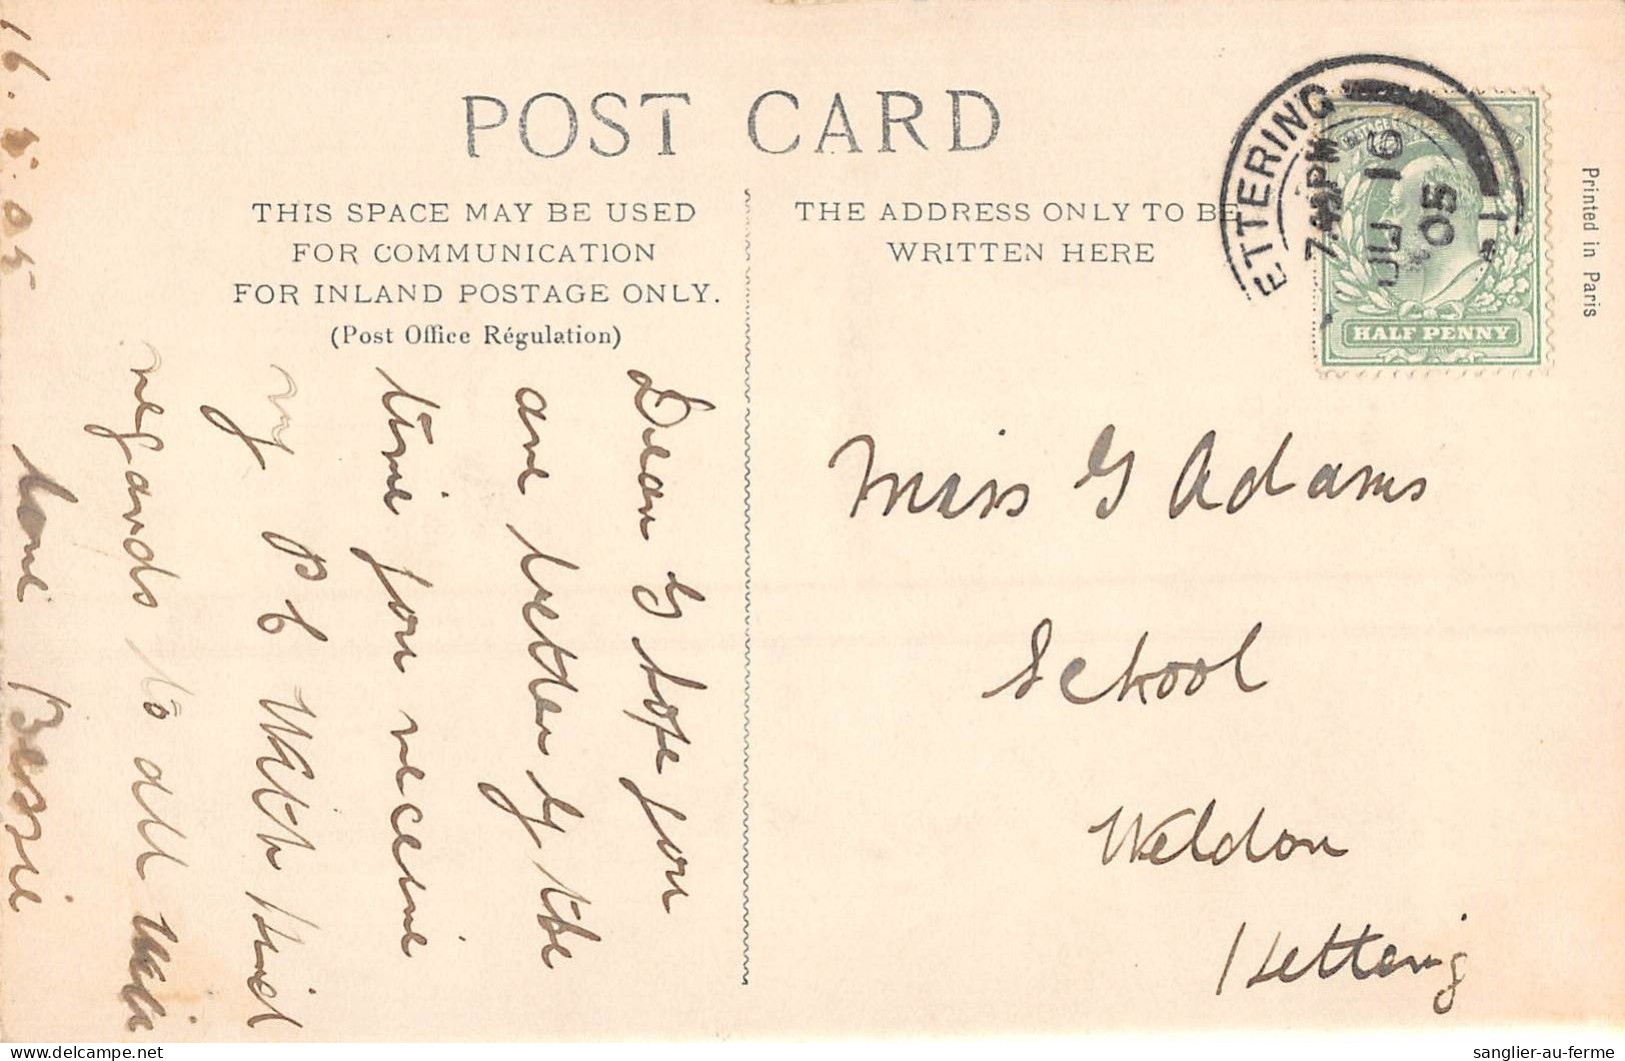 POST CARD
THIS SPACE MAY BE USED
FOR COMMUNICATION
FOR INLAND POSTAGE ONLY.
(Post Office Régulation)
THE ADDRESS ONLY TO BE
WRITTEN HERE
ETTERING
JU 16
05
HALF PENNY
Printed in Paris
Miss G Adams
School
Weldon
Kettering
16. 05
Dear G hope you
are better by the
time you receive
my P C With kind
regards to all
love Bessie
sanglier-au-ferme